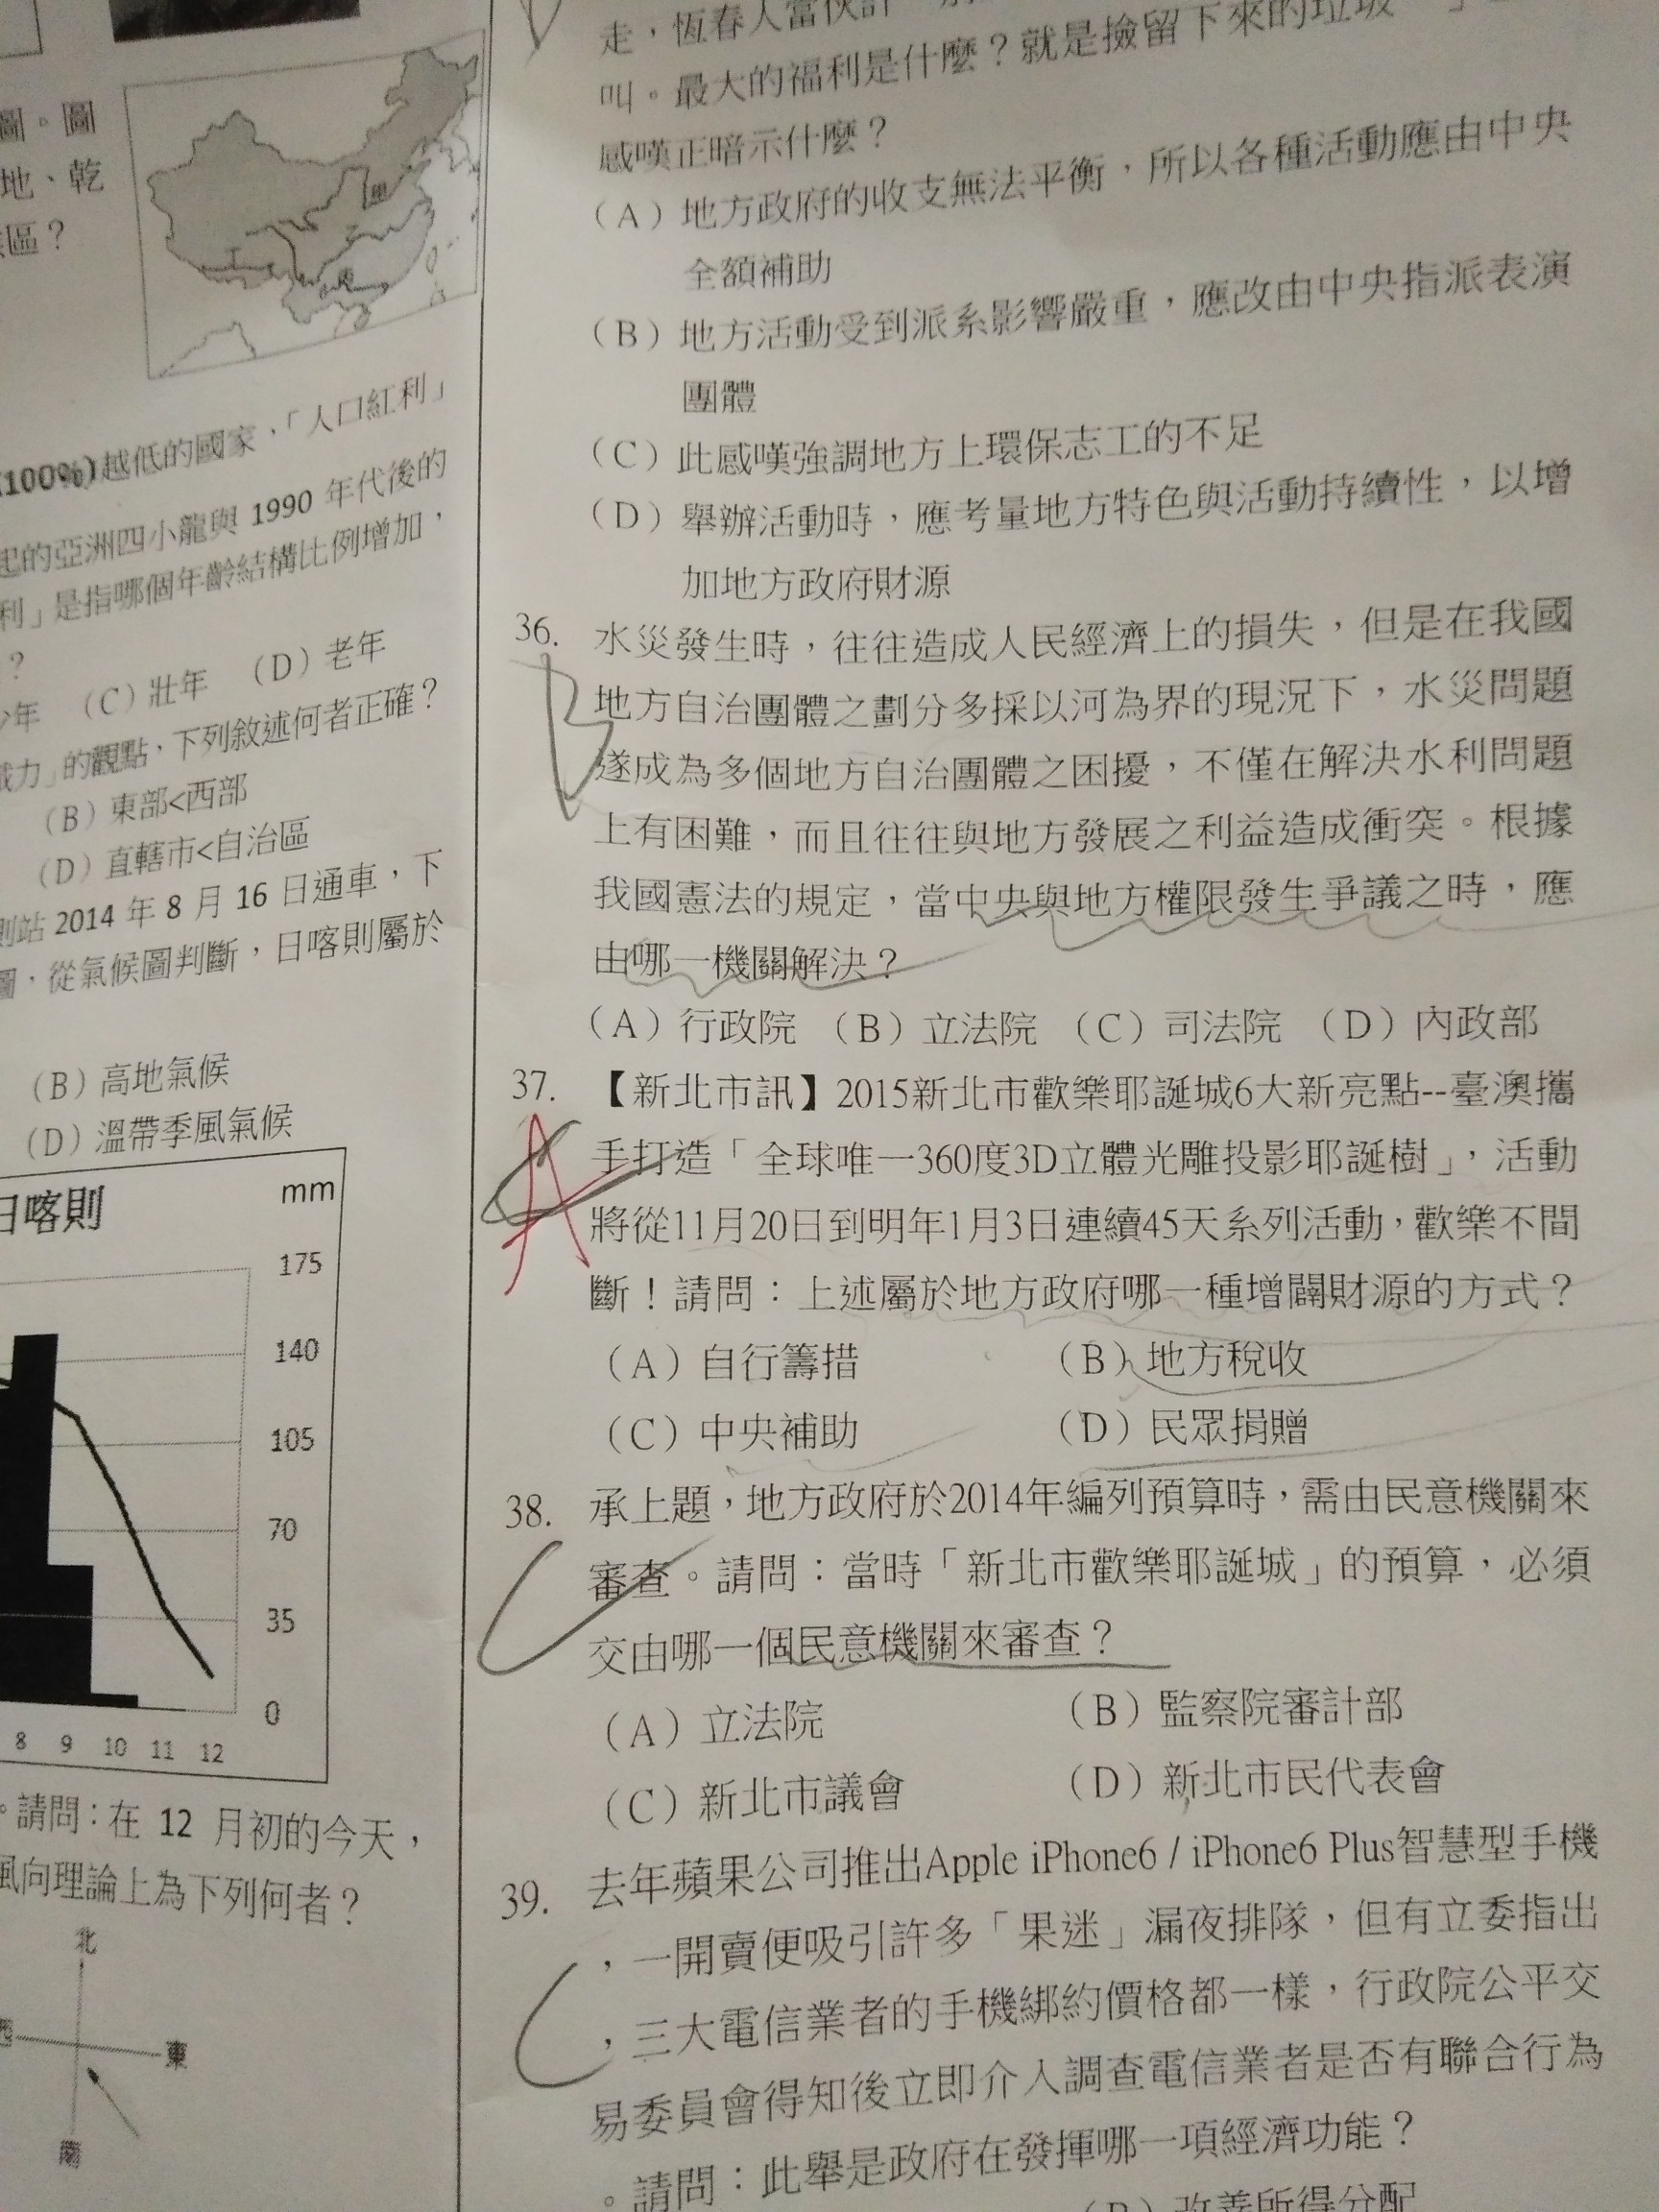 圖。圖
地、乾
區？
(100%)越低的國家，「人口紅利」
起的亞洲四小龍與 1990 年代後的
利」是指哪個年齡結構比例增加，
？
年 （C）壯年 （D）老年
力」的觀點，下列敘述何者正確？
（B）東部<西部
（D）直轄市<自治區
則站 2014 年 8 月 16 日通車，下
圖，從氣候圖判斷，日喀則屬於
（B）高地氣候
（D）溫帶季風氣候
日喀則
mm
175
140
105
70
35
0
8 9 10 11 12
。請問：在 12 月初的今天，
風向理論上為下列何者？
北
西
東
南
走，恆春人當伙計
叫。最大的福利是什麼？就是撿留下來的垃圾
感嘆正暗示什麼？
（A）地方政府的收支無法平衡，所以各種活動應由中央
全額補助
（B）地方活動受到派系影響嚴重，應改由中央指派表演
團體
（C）此感嘆強調地方上環保志工的不足
（D）舉辦活動時，應考量地方特色與活動持續性，以增
加地方政府財源
36. 水災發生時，往往造成人民經濟上的損失，但是在我國
地方自治團體之劃分多採以河為界的現況下，水災問題
遂成為多個地方自治團體之困擾，不僅在解決水利問題
上有困難，而且往往與地方發展之利益造成衝突。根據
我國憲法的規定，當中央與地方權限發生爭議之時，應
由哪一機關解決？
（A）行政院 （B）立法院 （C）司法院 （D）內政部
B
37. 【新北市訊】2015新北市歡樂耶誕城6大新亮點--臺澳攜
手打造「全球唯一360度3D立體光雕投影耶誕樹」，活動
將從11月20日到明年1月3日連續45天系列活動，歡樂不間
斷！請問：上述屬於地方政府哪一種增闢財源的方式？
（A）自行籌措 （B）地方稅收
（C）中央補助 （D）民眾捐贈
A
38. 承上題，地方政府於2014年編列預算時，需由民意機關來
審查。請問：當時「新北市歡樂耶誕城」的預算，必須
交由哪一個民意機關來審查？
（A）立法院 （B）監察院審計部
（C）新北市議會 （D）新北市民代表會
C
39. 去年蘋果公司推出Apple iPhone6 / iPhone6 Plus智慧型手機
，一開賣便吸引許多「果迷」漏夜排隊，但有立委指出
，三大電信業者的手機綁約價格都一樣，行政院公平交
易委員會得知後立即介入調查電信業者是否有聯合行為
。請問：此舉是政府在發揮哪一項經濟功能？
（B）改善所得分配
C